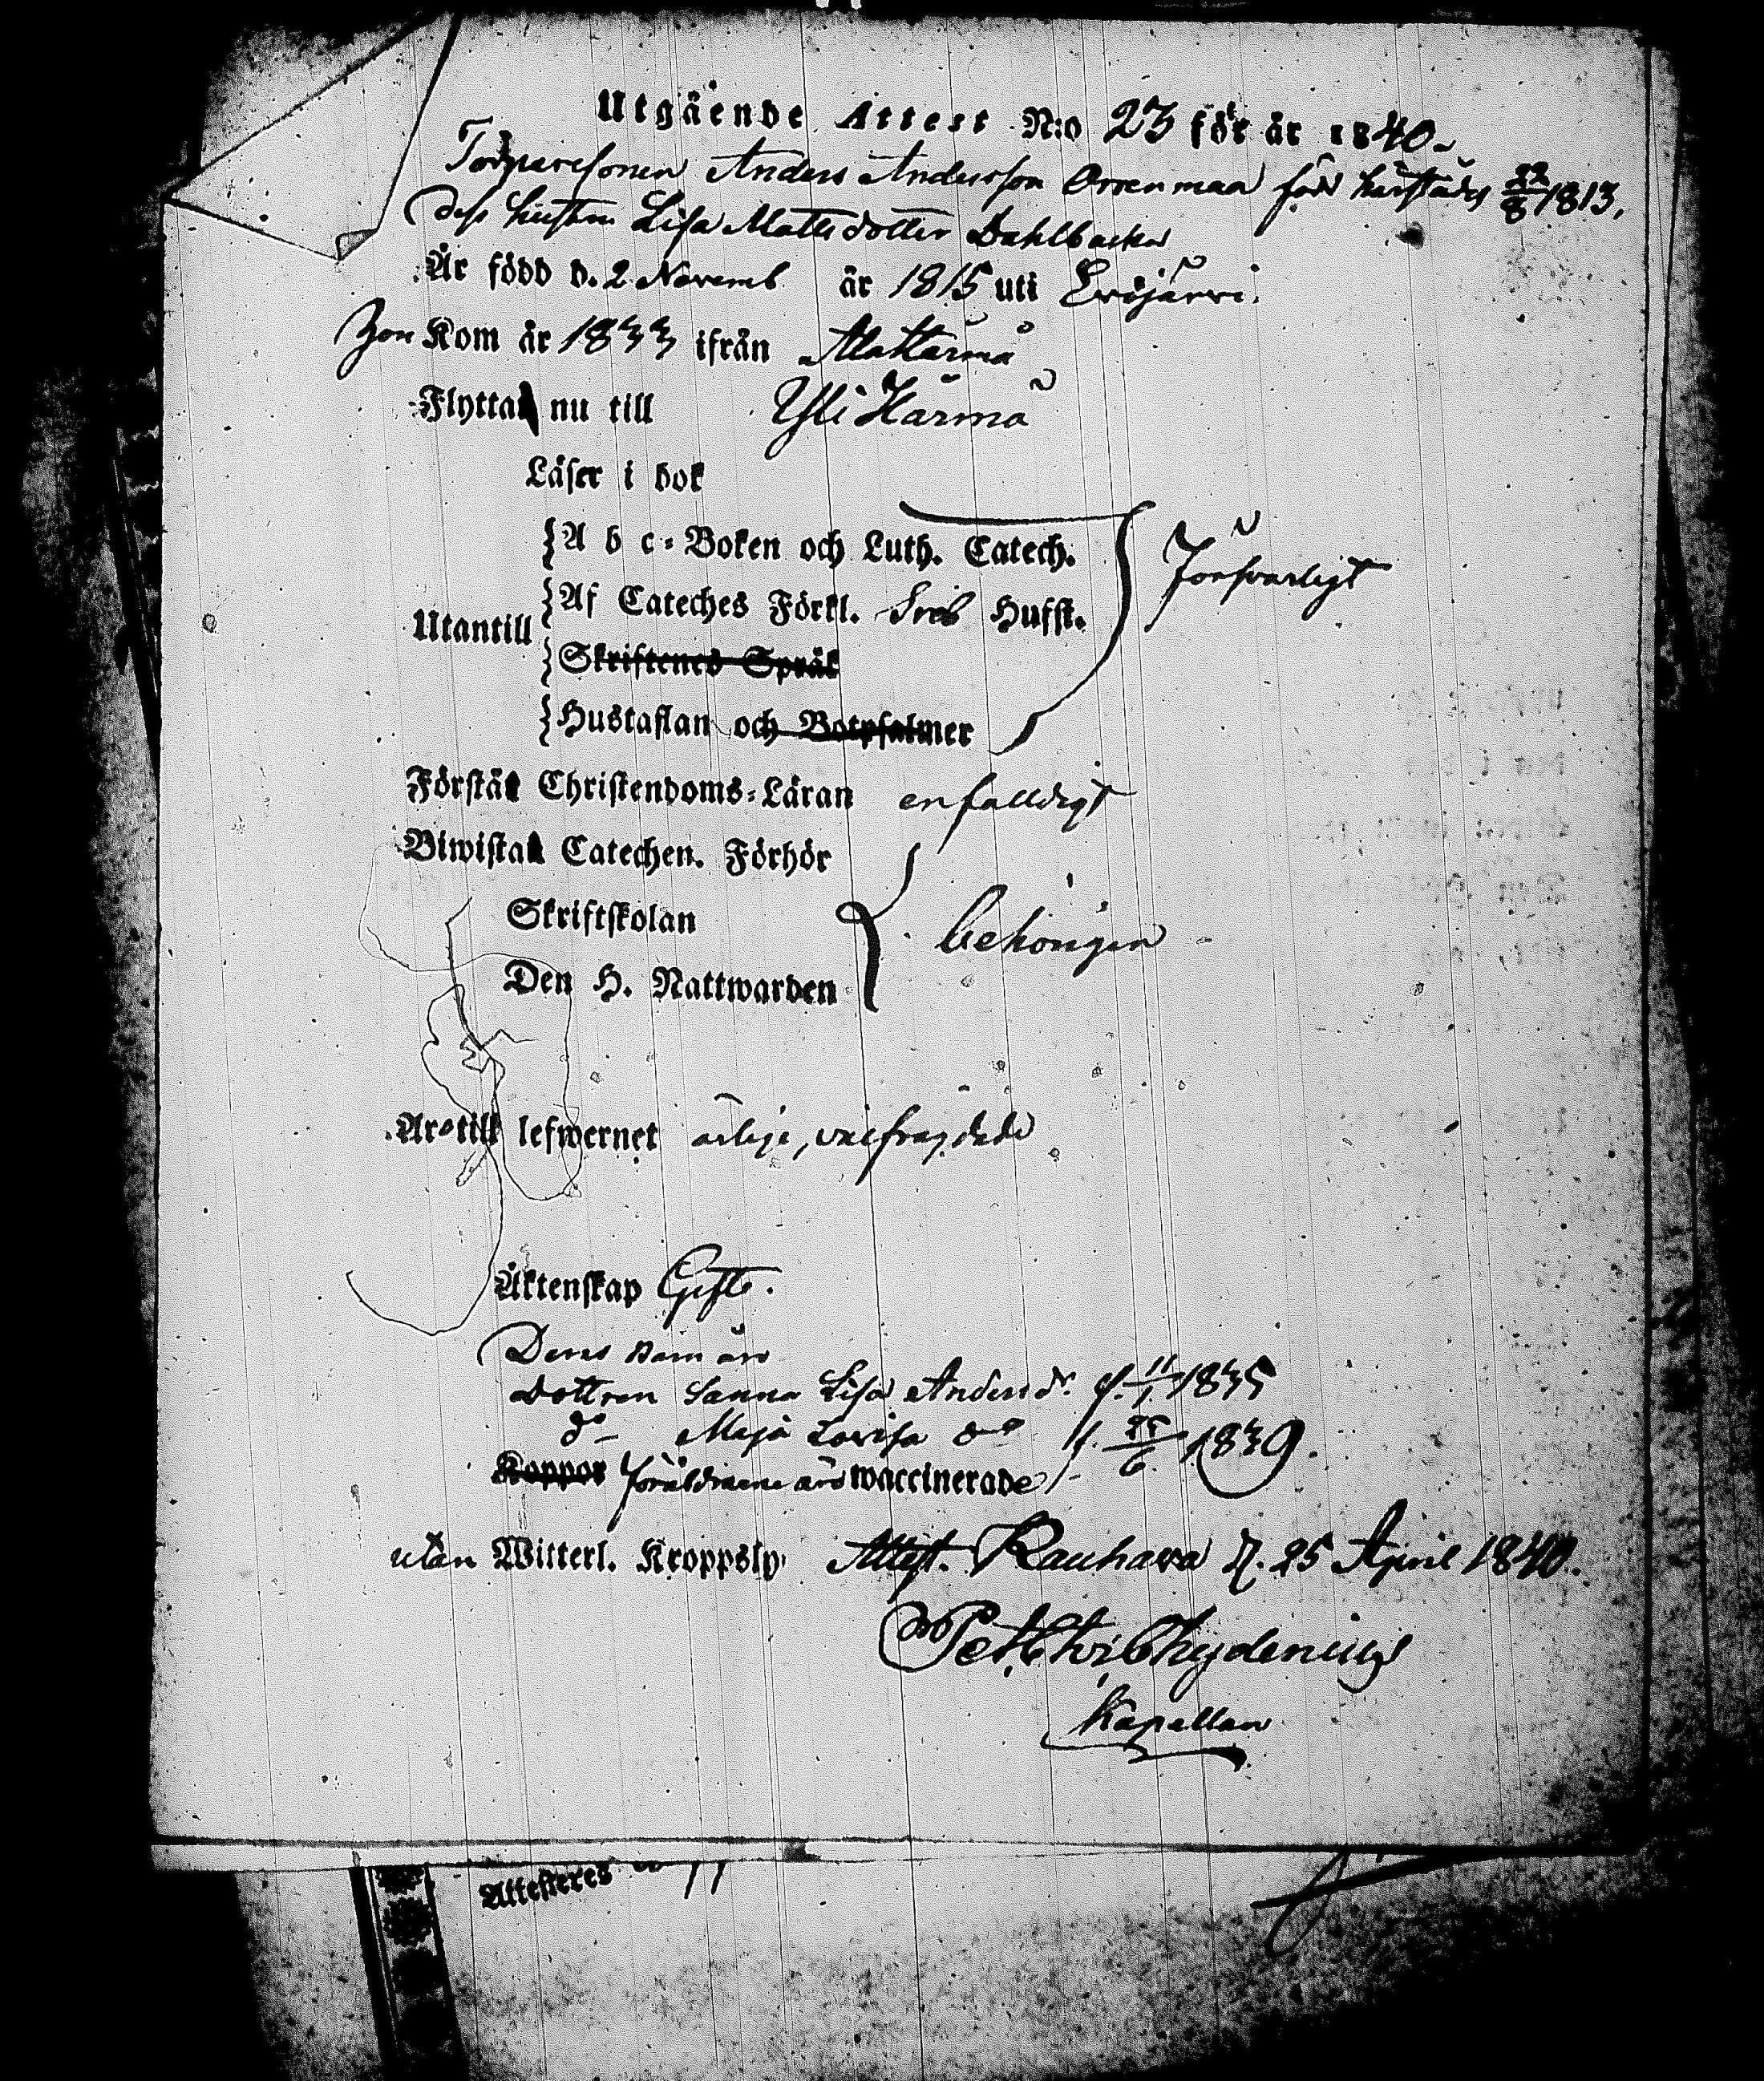 Utgående Attest N:o 23 för år 1840.
Torparesonen Anders Andersson Orrenmaa född härstädes 22/8 1813,
dess hustru Lisa Mattsdotter Dahlbacka
Är född d. 2 Novemb år 1815 uti Evijärvi.
Hon Kom år 1833 ifrån Ala Härmä
Flytta nu till Yli Härmä
Läser i bok
A b c-Boken och Luth. Catech.
Försvarligt
Utantill
Af Cateches Förkl. Sveb Huffst.
Skriftenes Språk
Hustaflan och Botpsalmer
Förstå Christendoms-Läran enfalldigt
Biwista Catechen. Förhör
Skriftskolan
behörigen
Den H. Nattwarden
Äro till lefwernet ärlige, välfrägdade
Äktenskap Gifte.
Deras Barn äro
dottren Sanna Lisa Andersdr. f. 11/1 1835
do Maja Lovisa do f. 25/6 1839.
Koppor föräldrarne äro waccinerade
utan Witterl. Kroppsly Attest. Kauhava d. 25 April 1840.
Pet. Chydenius
Kapellan
Attesteres